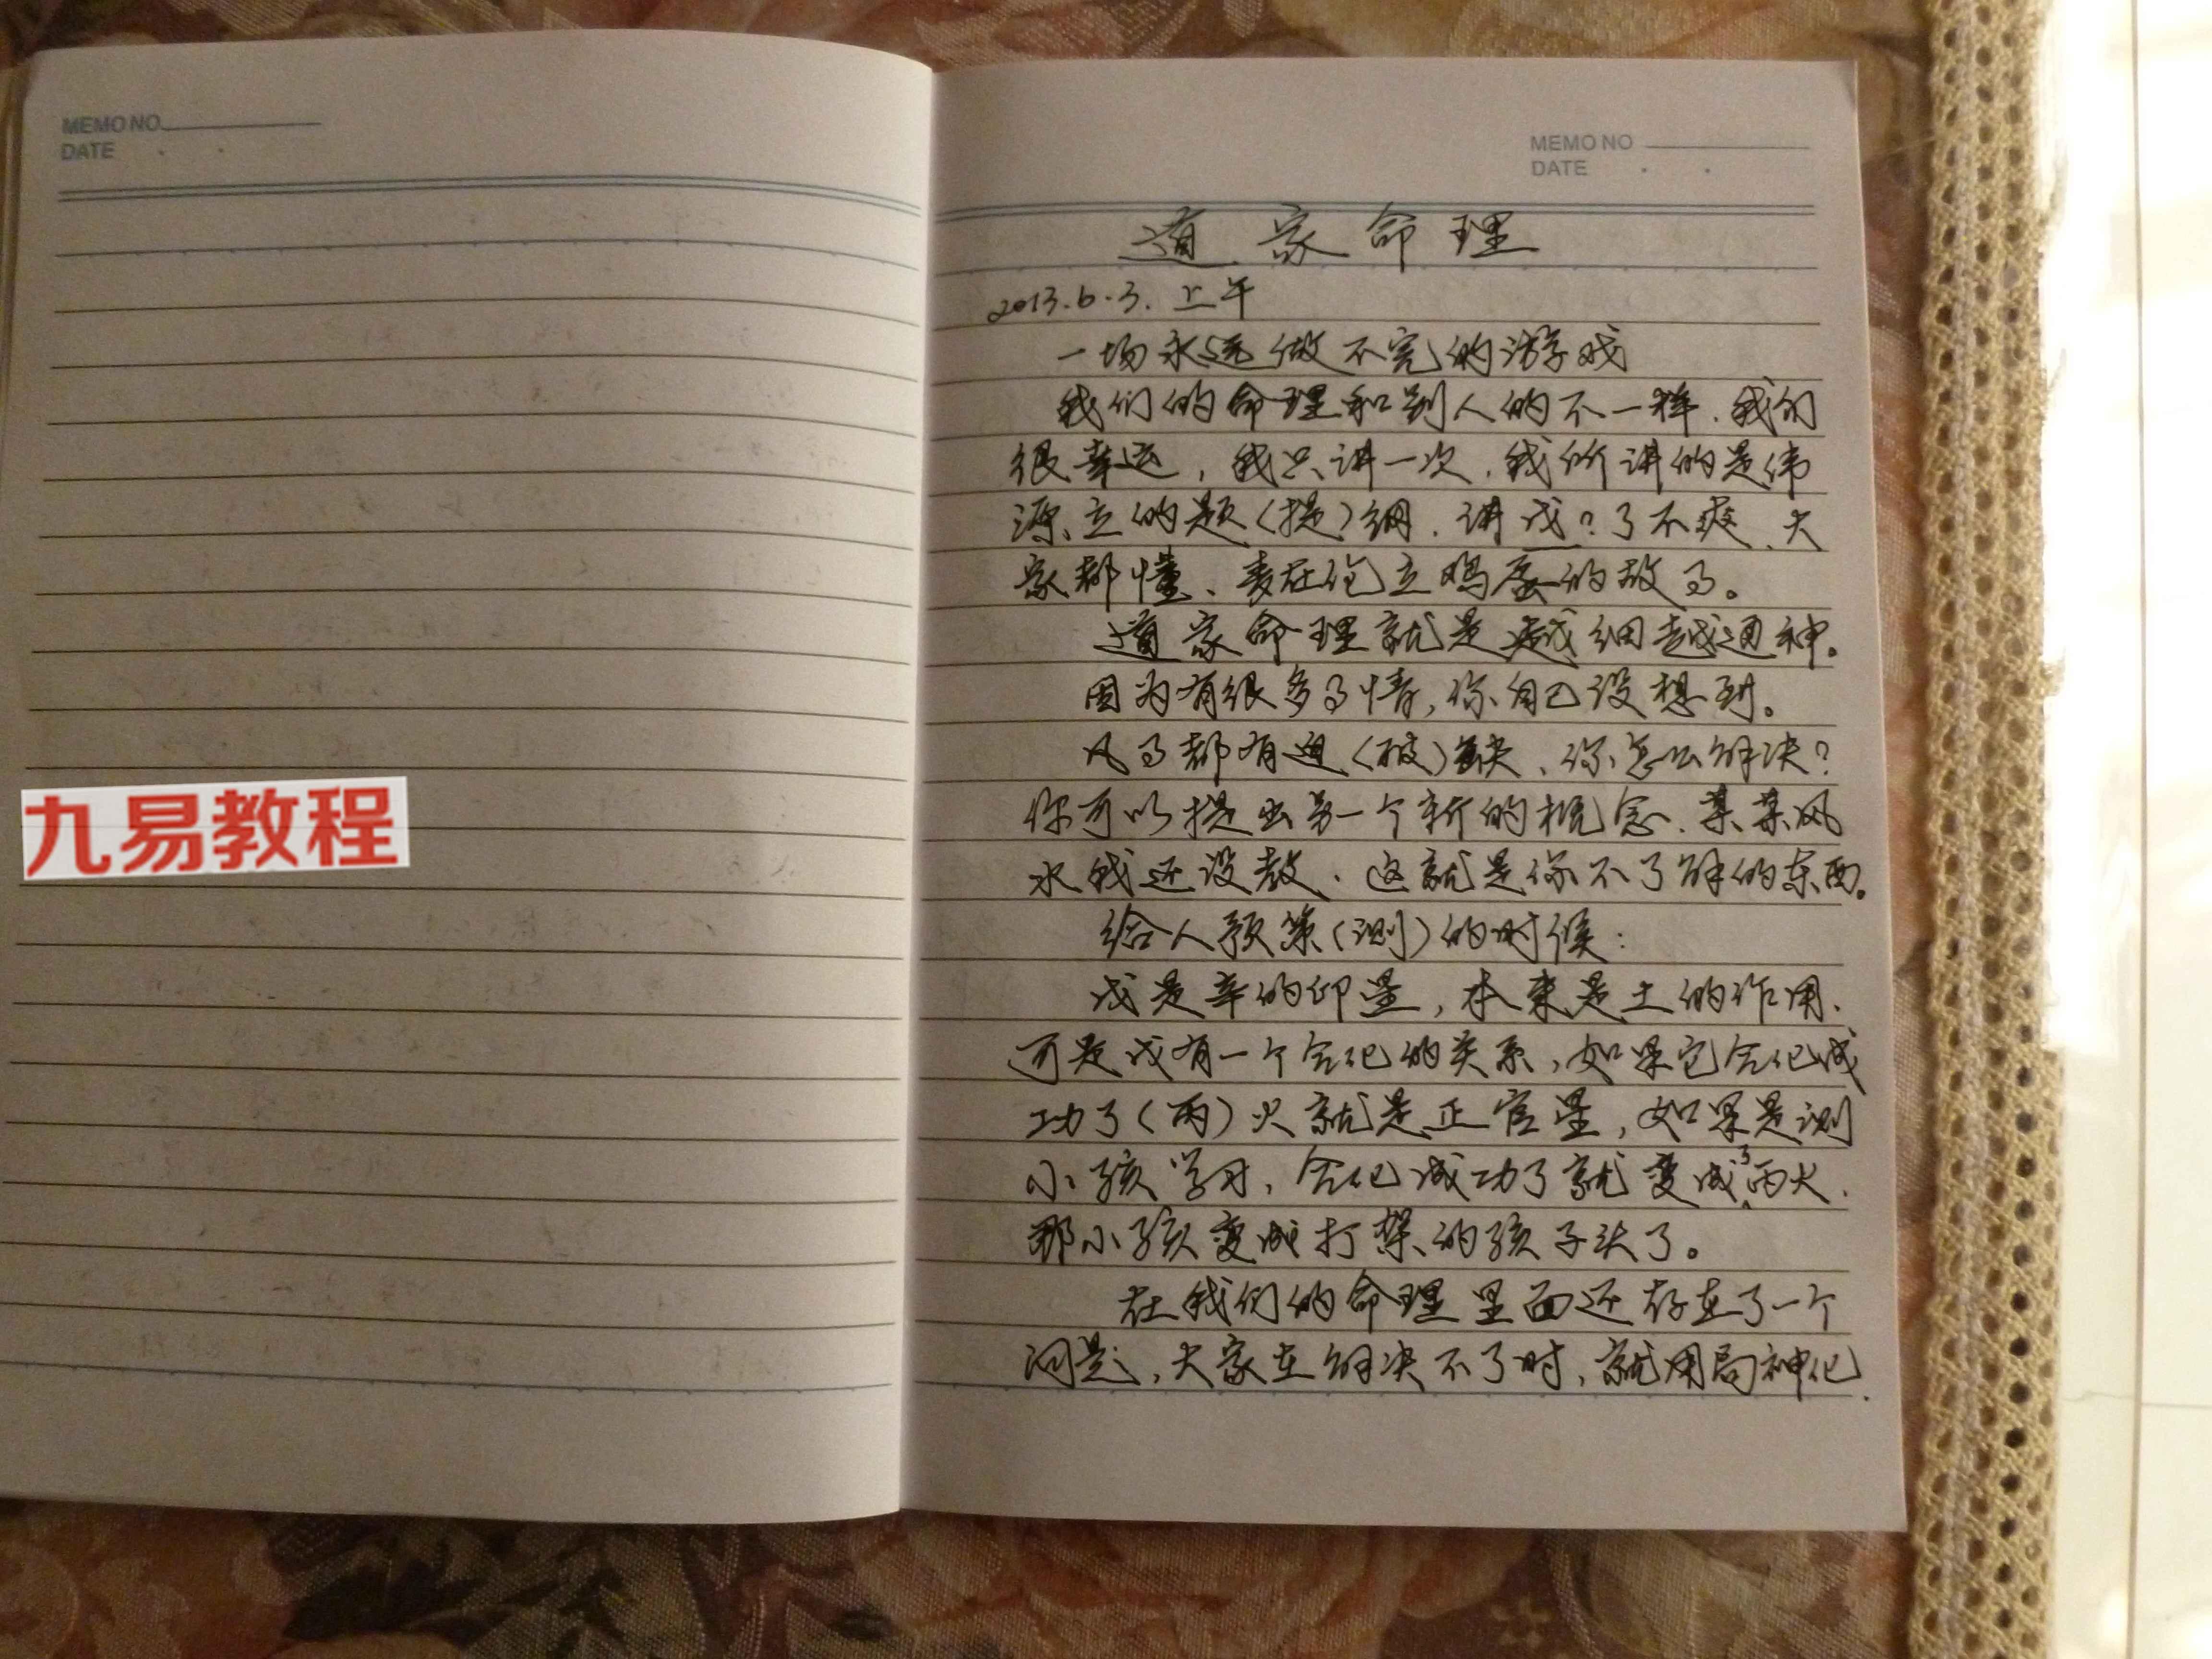 MEMO NO
DATE
九易教程
MEMO NO
DATE
道家命理
2013.6.3. 上午
一场永远做不完的游戏
我们的命理和别人的不一样.我们
很幸运,我只讲一次.我所讲的是伟
源立的题(提)纲.讲戊?了不疲、大
家都懂、麦在伦立鸡蛋的故事。
道家命理就是越细越通神。
因为有很多事情,你自己没想到。
凡事都有迫(破)缺、你怎么解决?
你可以提出另一个新的概念.某某风
水我还没教.这就是你不了解的东西。
给人预策(测)的时候:
戊是辛的印星,本来是土的作用、
可是戊有一个合化的关系,如果它合化成
功了(丙)火就是正官星,如果是测
小孩学习、合化成功了就变成了丙火.
那小孩变成打架的孩子头了。
在我们的命理里面还存在了一个
问题,大家在解决不了时、就用局神化.